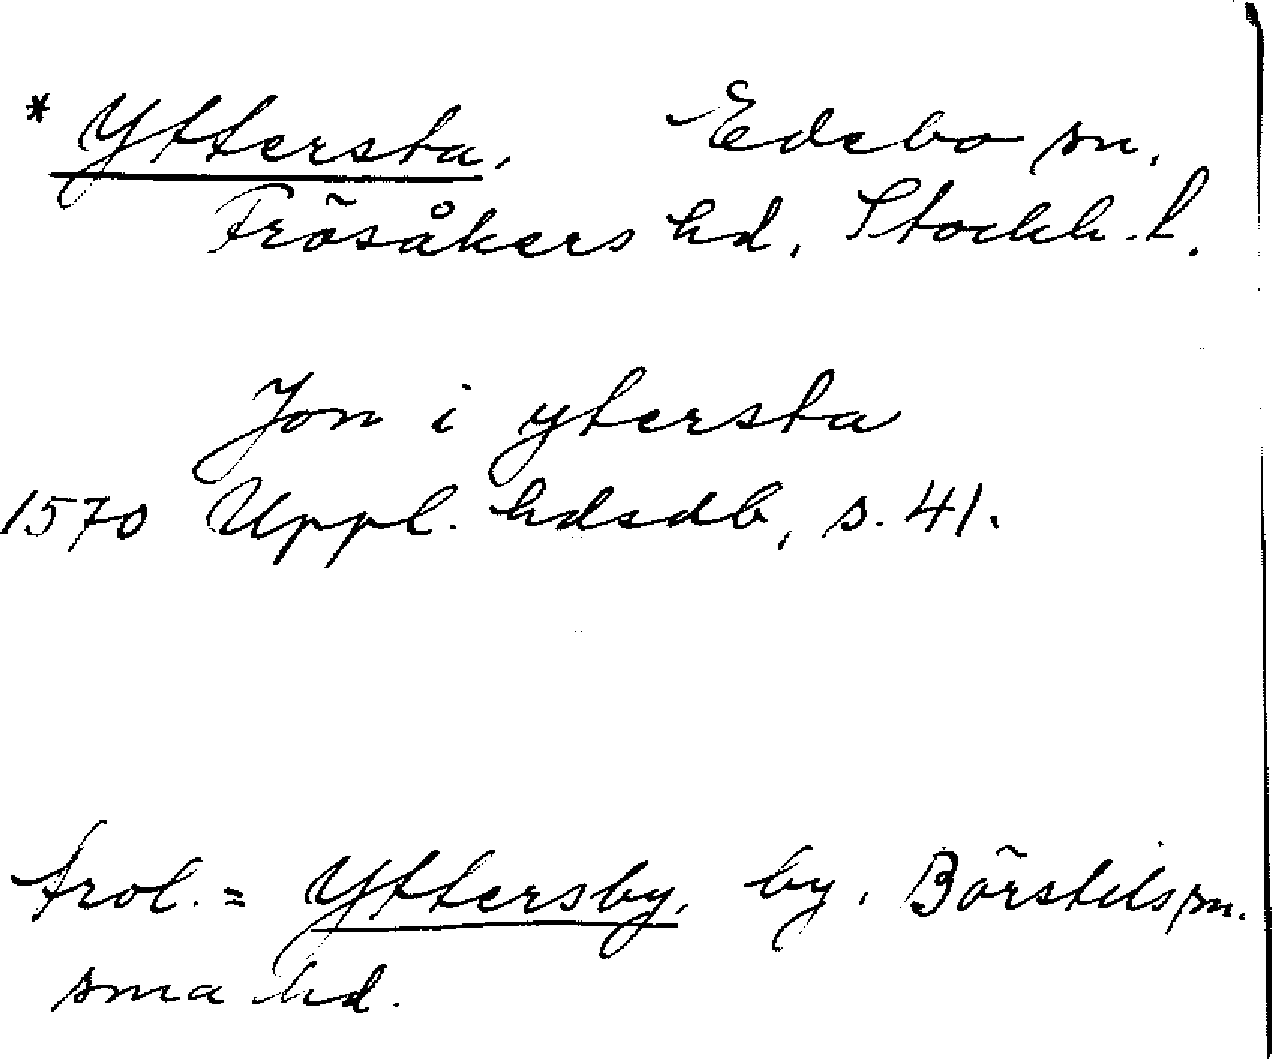 * Yttersta, Edebo sn,
Frösåkers hd, Stockh. l.
Jon i ytersta
1570 Uppl. hdsdb, s. 41.
trol. = Yttersby, by, Börstils sn.
sma hd.